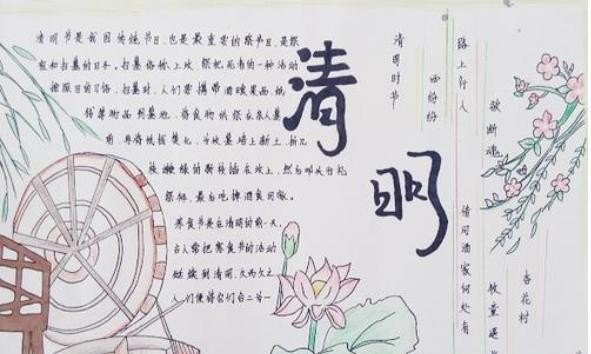 清明节是我国传统节日,也是最重要的祭节日,是祭
祖和扫墓的日子。扫墓俗称上坟,祭祀死者的一种活动
按照旧的习俗,扫墓时,人们要携带酒食果品,纸
钱等物品到墓地,将食物供祭在亲人墓
前,再将纸钱焚化,为坟墓培上新土,折几
枝嫩绿的新枝插在坟上,然后叩头行礼
祭拜,最后吃掉酒食回家。
寒食节是在清明的前一天,
古人常把寒食节的活动
延续到清明,久而久之
人们便将它们合二为一
清明
清明时节
雨纷纷
路上行人
欲断魂
借问酒家何处有
牧童遥
杏花村